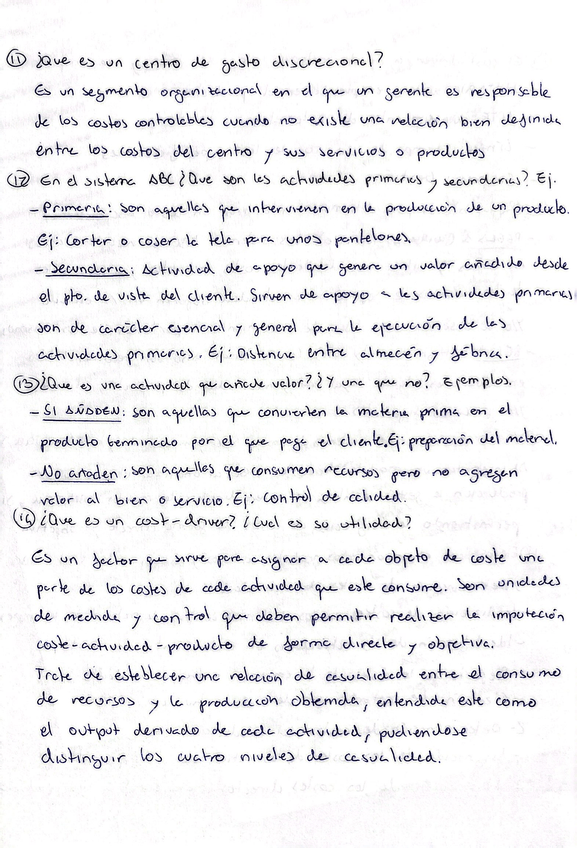 11 ¿Que es un centro de gasto discrecional?
Es un segmento organizacional en el que un gerente es responsable
de los costos controlables cuando no existe una relación bien definida
entre los costos del centro y sus servicios o productos
12 En el sistema ABC ¿Que son las actividades primarias y secundarias? Ej.
- Primaria: son aquellas que intervienen en la producción de un producto.
Ej: Cortar o coser la tela para unos pantalones.
- Secundaria: Actividad de apoyo que genera un valor añadido desde
el pto. de vista del cliente. Sirven de apoyo a las actividades primarias
son de carácter esencial y general para la ejecución de las
actividades primarias. Ej: Distancia entre almacén y fábrica.
13 ¿Que es una actividad que añade valor? ¿Y una que no? Ejemplos.
- SI AÑADEN: son aquellas que convierten la materia prima en el
producto terminado por el que paga el cliente. Ej: preparación del material.
- No añaden: son aquellas que consumen recursos pero no agregan
valor al bien o servicio. Ej: control de calidad.
14 ¿Que es un cost-driver? ¿Cual es su utilidad?
Es un factor que sirve para asignar a cada objeto de coste una
parte de los costes de cada actividad que este consume. Son unidades
de medida y control que deben permitir realizar la imputación
coste-actividad-producto de forma directa y objetiva.
Trata de establecer una relación de casualidad entre el consumo
de recursos y la producción obtenida, entendida este como
el output derivado de cada actividad, pudiendose
distinguir los cuatro niveles de casualidad.